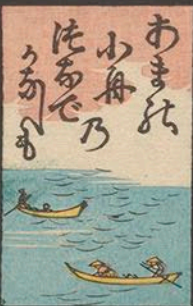 あまの
小舟乃
つなで
かなしも